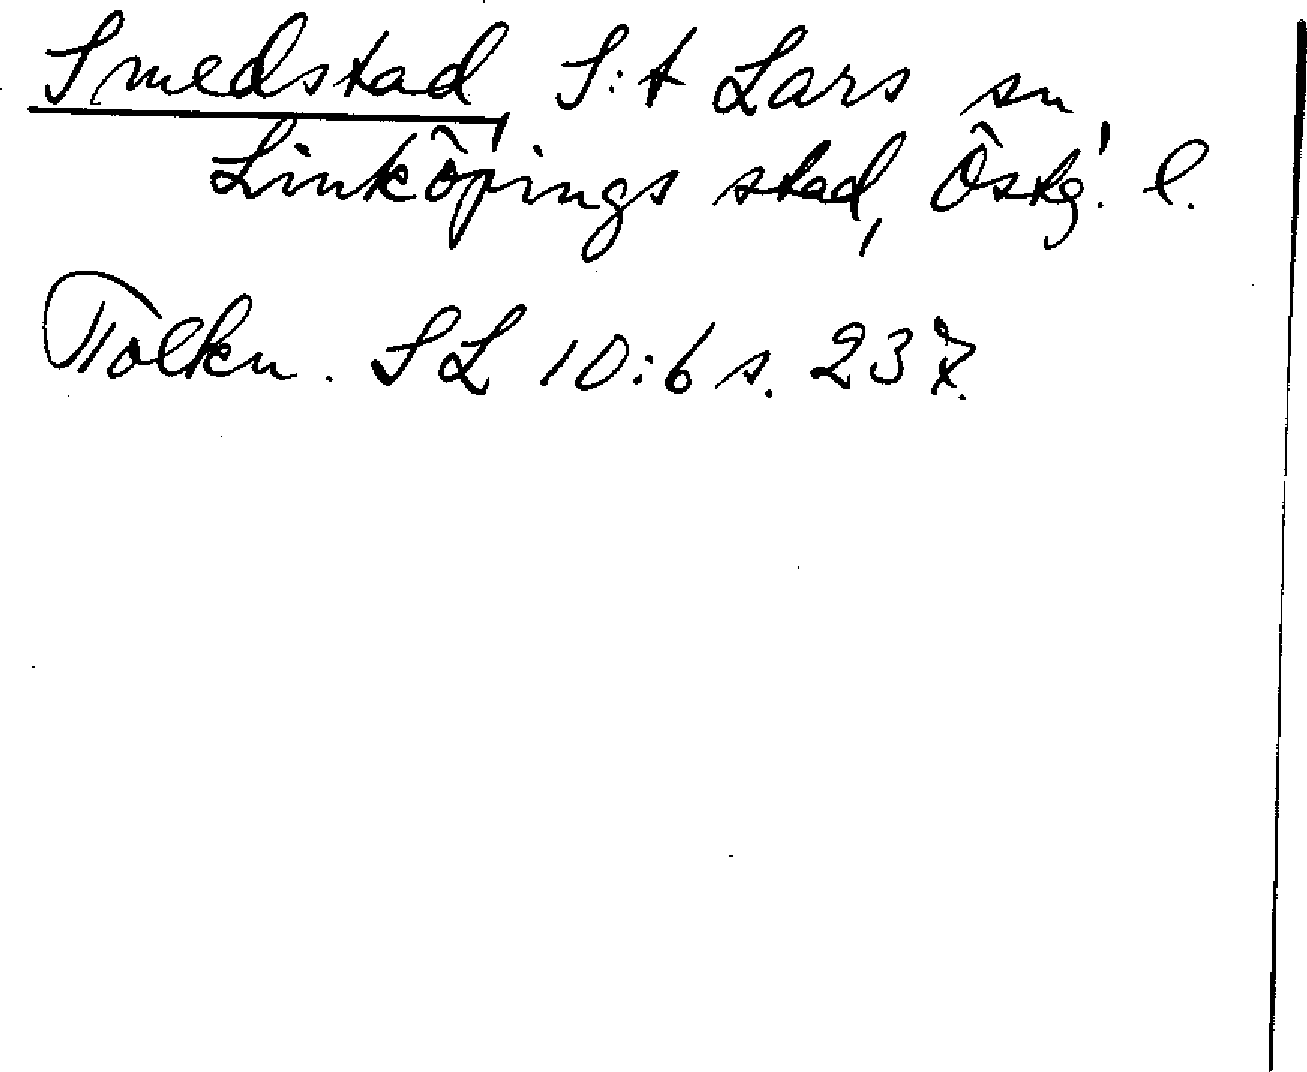 Smedstad, S:t Lars sn
Linköpings stad, Östg. l.
Tolkn. SL 10:6 s. 237.